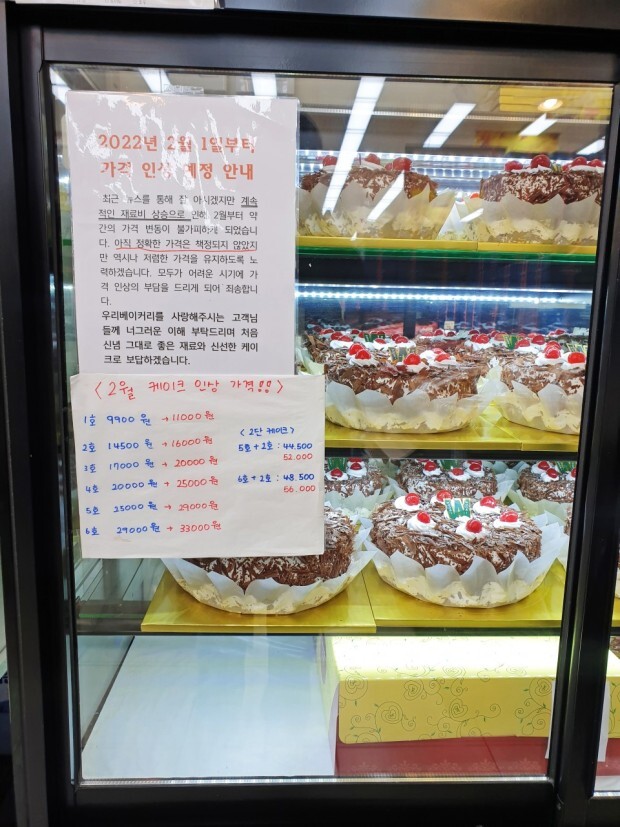 2022년 2월 1일부터
가격 인상 예정 안내
최근 뉴스를 통해 잘 아시겠지만 계속
적인 재료비 상승으로 인해 2월부터 약
간의 가격 변동이 불가피하게 되었습니
다. 아직 정확한 가격은 책정되지 않았지
만 역시나 저렴한 가격을 유지하도록 노
력하겠습니다. 모두가 어려운 시기에 가
격 인상의 부담을 드리게 되어 죄송합니
다.
우리베이커리를 사랑해주시는 고객님
들께 너그러운 이해 부탁드리며 처음
신념 그대로 좋은 재료와 신선한 케이
크로 보답하겠습니다.
< 2월 케이크 인상 가격!! >
1호 9900 원 → 11000원
2호 14500 원 → 16000원
3호 17000 원 → 20000원
4호 20000 원 → 25000원
5호 25000원 → 29000원
6호 29000원 → 33000원
< 2단 케이크 >
5호 + 2호 : 44.500
52.000
6호 + 2호 : 48.500
56.000